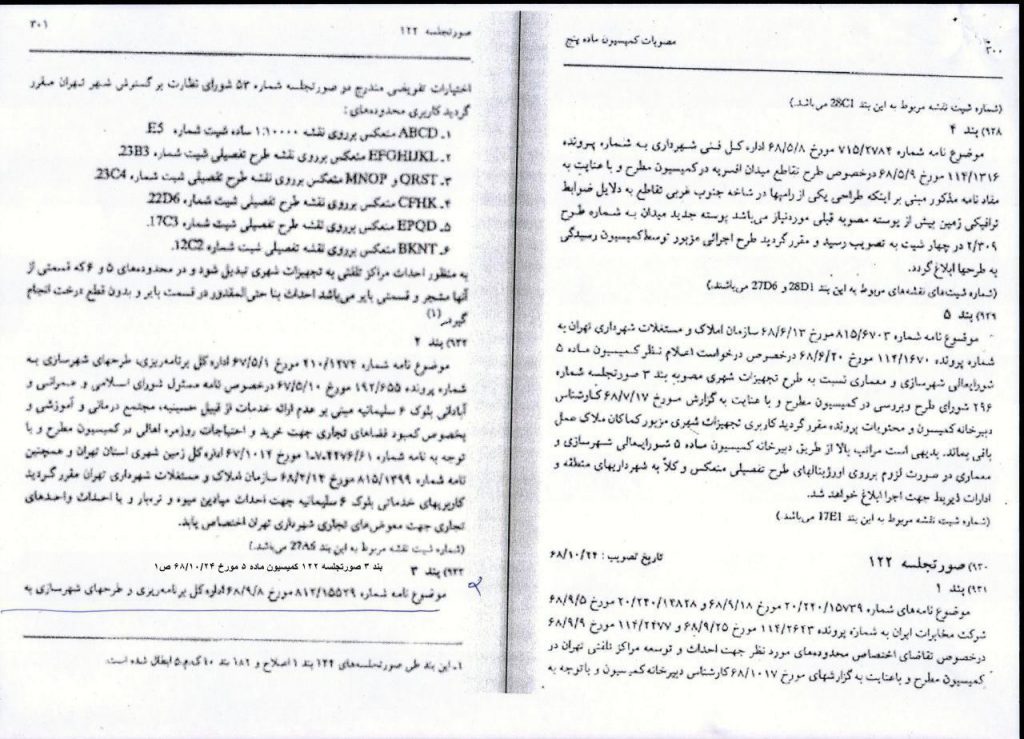 ۳۰۰
مصوبات کمیسیون ماده پنج
(شماره شیت نقشه مربوط به این بند 28C1 می‌باشد.)
۹۲۸) بند ۴
موضوع نامه شماره ۷۱۵/۲۷۸۴ مورخ ۶۸/۵/۸ اداره کل فنی شهرداری به شماره پرونده
۱۱۴/۱۳۱۶ مورخ ۶۸/۵/۹ درخصوص طرح تقاطع میدان افسریه در کمیسیون مطرح و با عنایت به
مفاد نامه مذکور مبنی بر اینکه طراحی یکی از رامپها در شاخه جنوب غربی تقاطع به دلایل ضوابط
ترافیکی زمین بیش از پوسته مصوبه قبلی موردنیاز می‌باشد پوسته جدید میدان به شماره طرح
۲/۳۰۹ در چهار شیت به تصویب رسید و مقرر گردید طرح اجرائی مزبور توسط کمیسیون رسیدگی
به طرحها ابلاغ گردد.
(شماره شیت‌های نقشه‌های مربوط به این بند 28D1 و 27D6 می‌باشند.)
۹۲۹) بند ۵
موضوع نامه شماره ۸۱۵/۶۷۰۳ مورخ ۶۸/۶/۱۳ سازمان املاک و مستغلات شهرداری تهران به
شماره پرونده ۱۱۴/۱۶۷۰ مورخ ۶۸/۶/۲۰ درخصوص درخواست اعلام نظر کمیسیون ماده ۵
شورایعالی شهرسازی و معماری نسبت به طرح تجهیزات شهری مصوبه بند ۳ صورتجلسه شماره
۲۹۶ شورای طرح و بررسی در کمیسیون مطرح و با عنایت به گزارش مورخ ۶۸/۷/۱۷ کارشناس
دبیرخانه کمیسون و محتویات پرونده مقرر گردید کاربری تجهیزات شهری مزبور کماکان ملاک عمل
باقی بماند. بدیهی است مراتب بالا از طریق دبیرخانه کمیسیون ماده ۵ شورایعالی شهرسازی و
معماری در صورت لزوم برروی اورژینالهای طرح تفصیلی منعکس و کلاً به شهرداریهای منطقه و
ادارات ذیربط جهت اجرا ابلاغ خواهد شد.
(شماره شیت نقشه مربوط به این بند 17E1 می‌باشد.)
۹۳۰) صورتجلسه ۱۲۲ تاریخ تصویب : ۶۸/۱۰/۲۴
۹۳۱) بند ۱
موضوع نامه‌های شماره ۲۰/۲۴۰/۱۵۷۳۹ مورخ ۶۸/۹/۱۸ و ۲۰/۲۴۰/۱۳۸۲۸ مورخ ۶۸/۹/۵
شرکت مخابرات ایران به شماره پرونده ۱۱۴/۲۶۴۳ مورخ ۶۸/۹/۲۵ و ۱۱۴/۲۴۷۷ مورخ ۶۸/۹/۹
درخصوص تقاضای اختصاص محدوده‌های مورد نظر جهت احداث و توسعه مراکز تلفنی تهران در
کمیسیون مطرح و باعنایت به گزارشهای مورخ ۶۸/۱۰/۱۷ کارشناس دبیرخانه کمیسیون و باتوجه به
صورتجلسه ۱۲۲
۳۰۱
اختیارات تفویضی مندرج در صورتجلسه شماره ۵۳ شورای نظارت بر گسترش شهر تهران مقرر
گردید کاربری محدوده‌های:
۱ـ ABCD منعکس برروی نقشه ۱:۱۰۰۰۰ ساده شیت شماره E5.
۲ـ EFGHIJKL منعکس برروی نقشه طرح تفصیلی شیت شماره 23B3.
۳ـ QRST و MNOP منعکس برروی نقشه طرح تفصیلی شیت شماره 23C4.
۴ـ CFHK منعکس برروی نقشه طرح تفصیلی شیت شماره 22D6.
۵ـ EPQD منعکس برروی نقشه طرح تفصیلی شیت شماره 17C3.
۶ـ BKNT منعکس برروی نقشه تفصیلی شیت شماره 12C2.
به منظور احداث مراکز تلفنی به تجهیزات شهری تبدیل شود و در محدوده‌های ۵ و ۶ که قسمتی از
آنها مشجر و قسمتی بایر می‌باشد احداث بنا حتی‌المقدور در قسمت بایر و بدون قطع درخت انجام
گیرد.(۱)
۹۳۲) بند ۲
موضوع نامه شماره ۲۱۰/۱۲۷۴ مورخ ۶۷/۵/۱ اداره کل برنامه‌ریزی، طرحهای شهرسازی به
شماره پرونده ۱۹۲/۶۵۵ مورخ ۶۷/۵/۱۰ درخصوص نامه مسئول شورای اسلامی و عمرانی و
آبادانی بلوک ۶ سلیمانیه مبنی بر عدم ارائه خدمات از قبیل حسینیه، مجتمع درمانی و آموزشی و
بخصوص کمبود فضاهای تجاری جهت خرید و احتیاجات روزمره اهالی در کمیسیون مطرح و با
توجه به نامه شماره ۷۰۱۰۴۴۷۶/۶۱ مورخ ۶۷/۱۰/۱۲ اداره کل زمین شهری استان تهران و همچنین
نامه شماره ۸۱۵/۱۳۹۹ مورخ ۶۸/۲/۱۳ سازمان املاک و مستغلات شهرداری تهران مقرر گردید
کاربریهای خدماتی بلوک ۶ سلیمانیه جهت احداث میادین میوه و تره‌بار و یا احداث واحدهای
تجاری جهت معوض‌های تجاری شهرداری تهران اختصاص یابد.
(شماره شیت نقشه مربوط به این بند 27A6 می‌باشد.)
۹۳۳) بند ۳ بند ۳ صورتجلسه ۱۲۲ کمیسیون ماده ۵ مورخ ۶۸/۱۰/۲۴ ص۱
موضوع نامه شماره ۸۱۲/۱۵۵۲۹ مورخ ۶۸/۹/۸ اداره کل برنامه‌ریزی و طرحهای شهرسازی به
۱ـ این بند طی صورتجلسه‌های ۱۲۴ بند ۱ اصلاح و ۱۸۲ بند ۱۰ ک.م.۵ ابطال شده است.